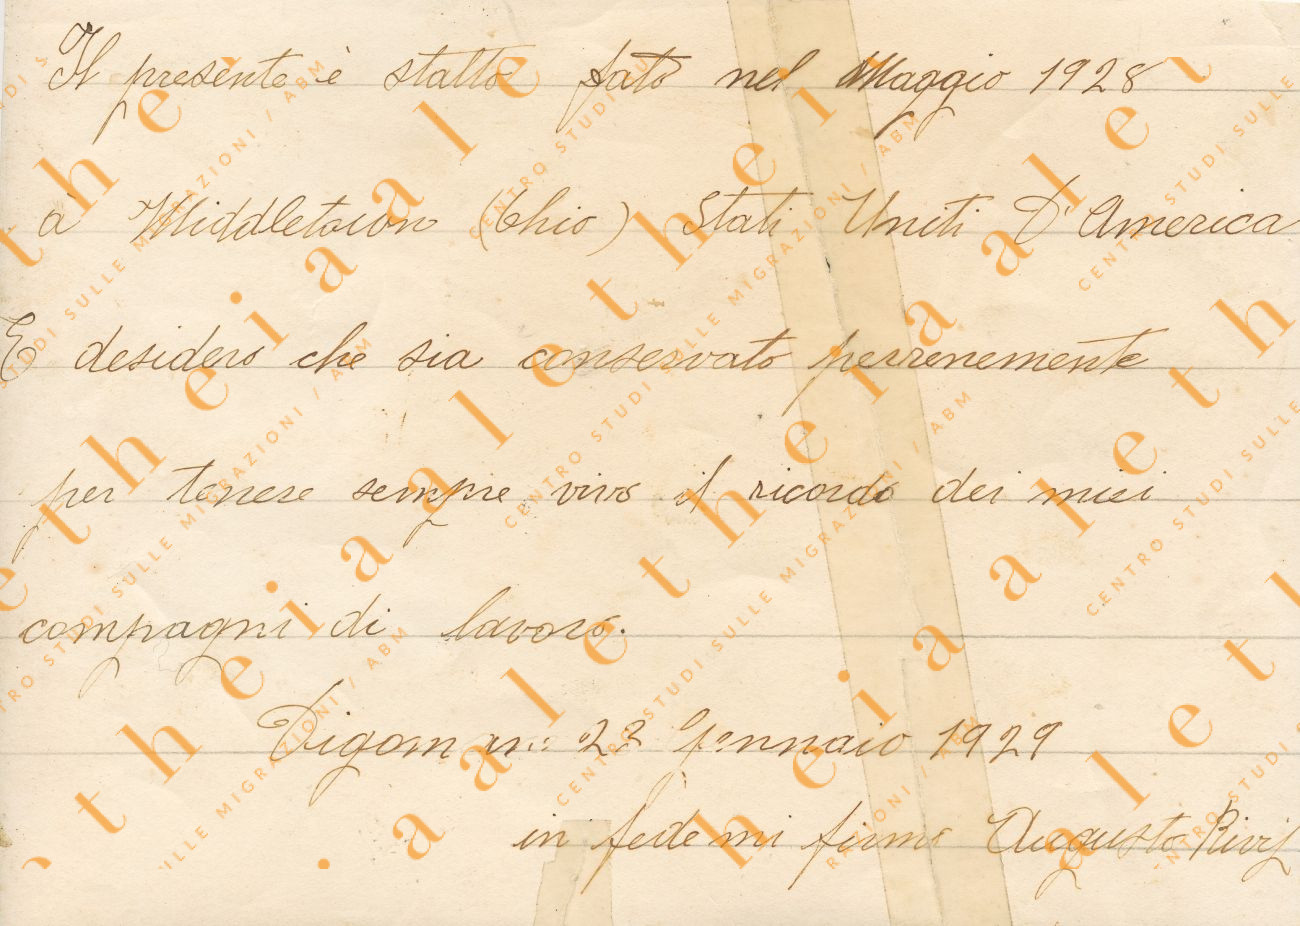 Il presente è statto fato nel Maggio 1928
à Middletown (Ohio) Stati Uniti D'America
E desidero che sia conservato perrenemente
per tenere sempre vivo il ricordo dei miei
compagni di lavoro.
Digoman 23 Gennaio 1929
in fede mi firmo Augusto
aletheia
CENTRO STUDI SULLE MIGRAZIONI / ABM